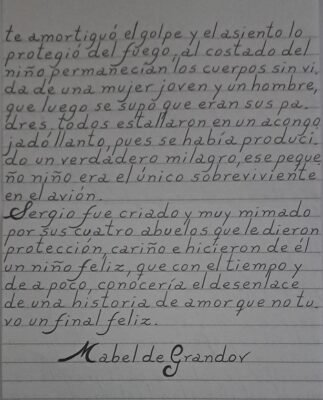 te amortiguó el golpe y el asiento lo
protegió del fuego, al costado del
niño permanecían los cuerpos sin vi-
da de una mujer joven y un hombre,
que luego se supo que eran sus pa-
dres, todos estallaron en un acongo
jado llanto, pues se había produci-
do un verdadero milagro, ese peque
ño niño era el único sobreviviente
en el avión.
Sergio fue criado y muy mimado
por sus cuatro abuelos que le dieron
protección, cariño e hicieron de él
un niño feliz, que con el tiempo y
de a poco, conocería el desenlace
de una historia de amor que no tu-
vo un final feliz.
Mabel de Grandov